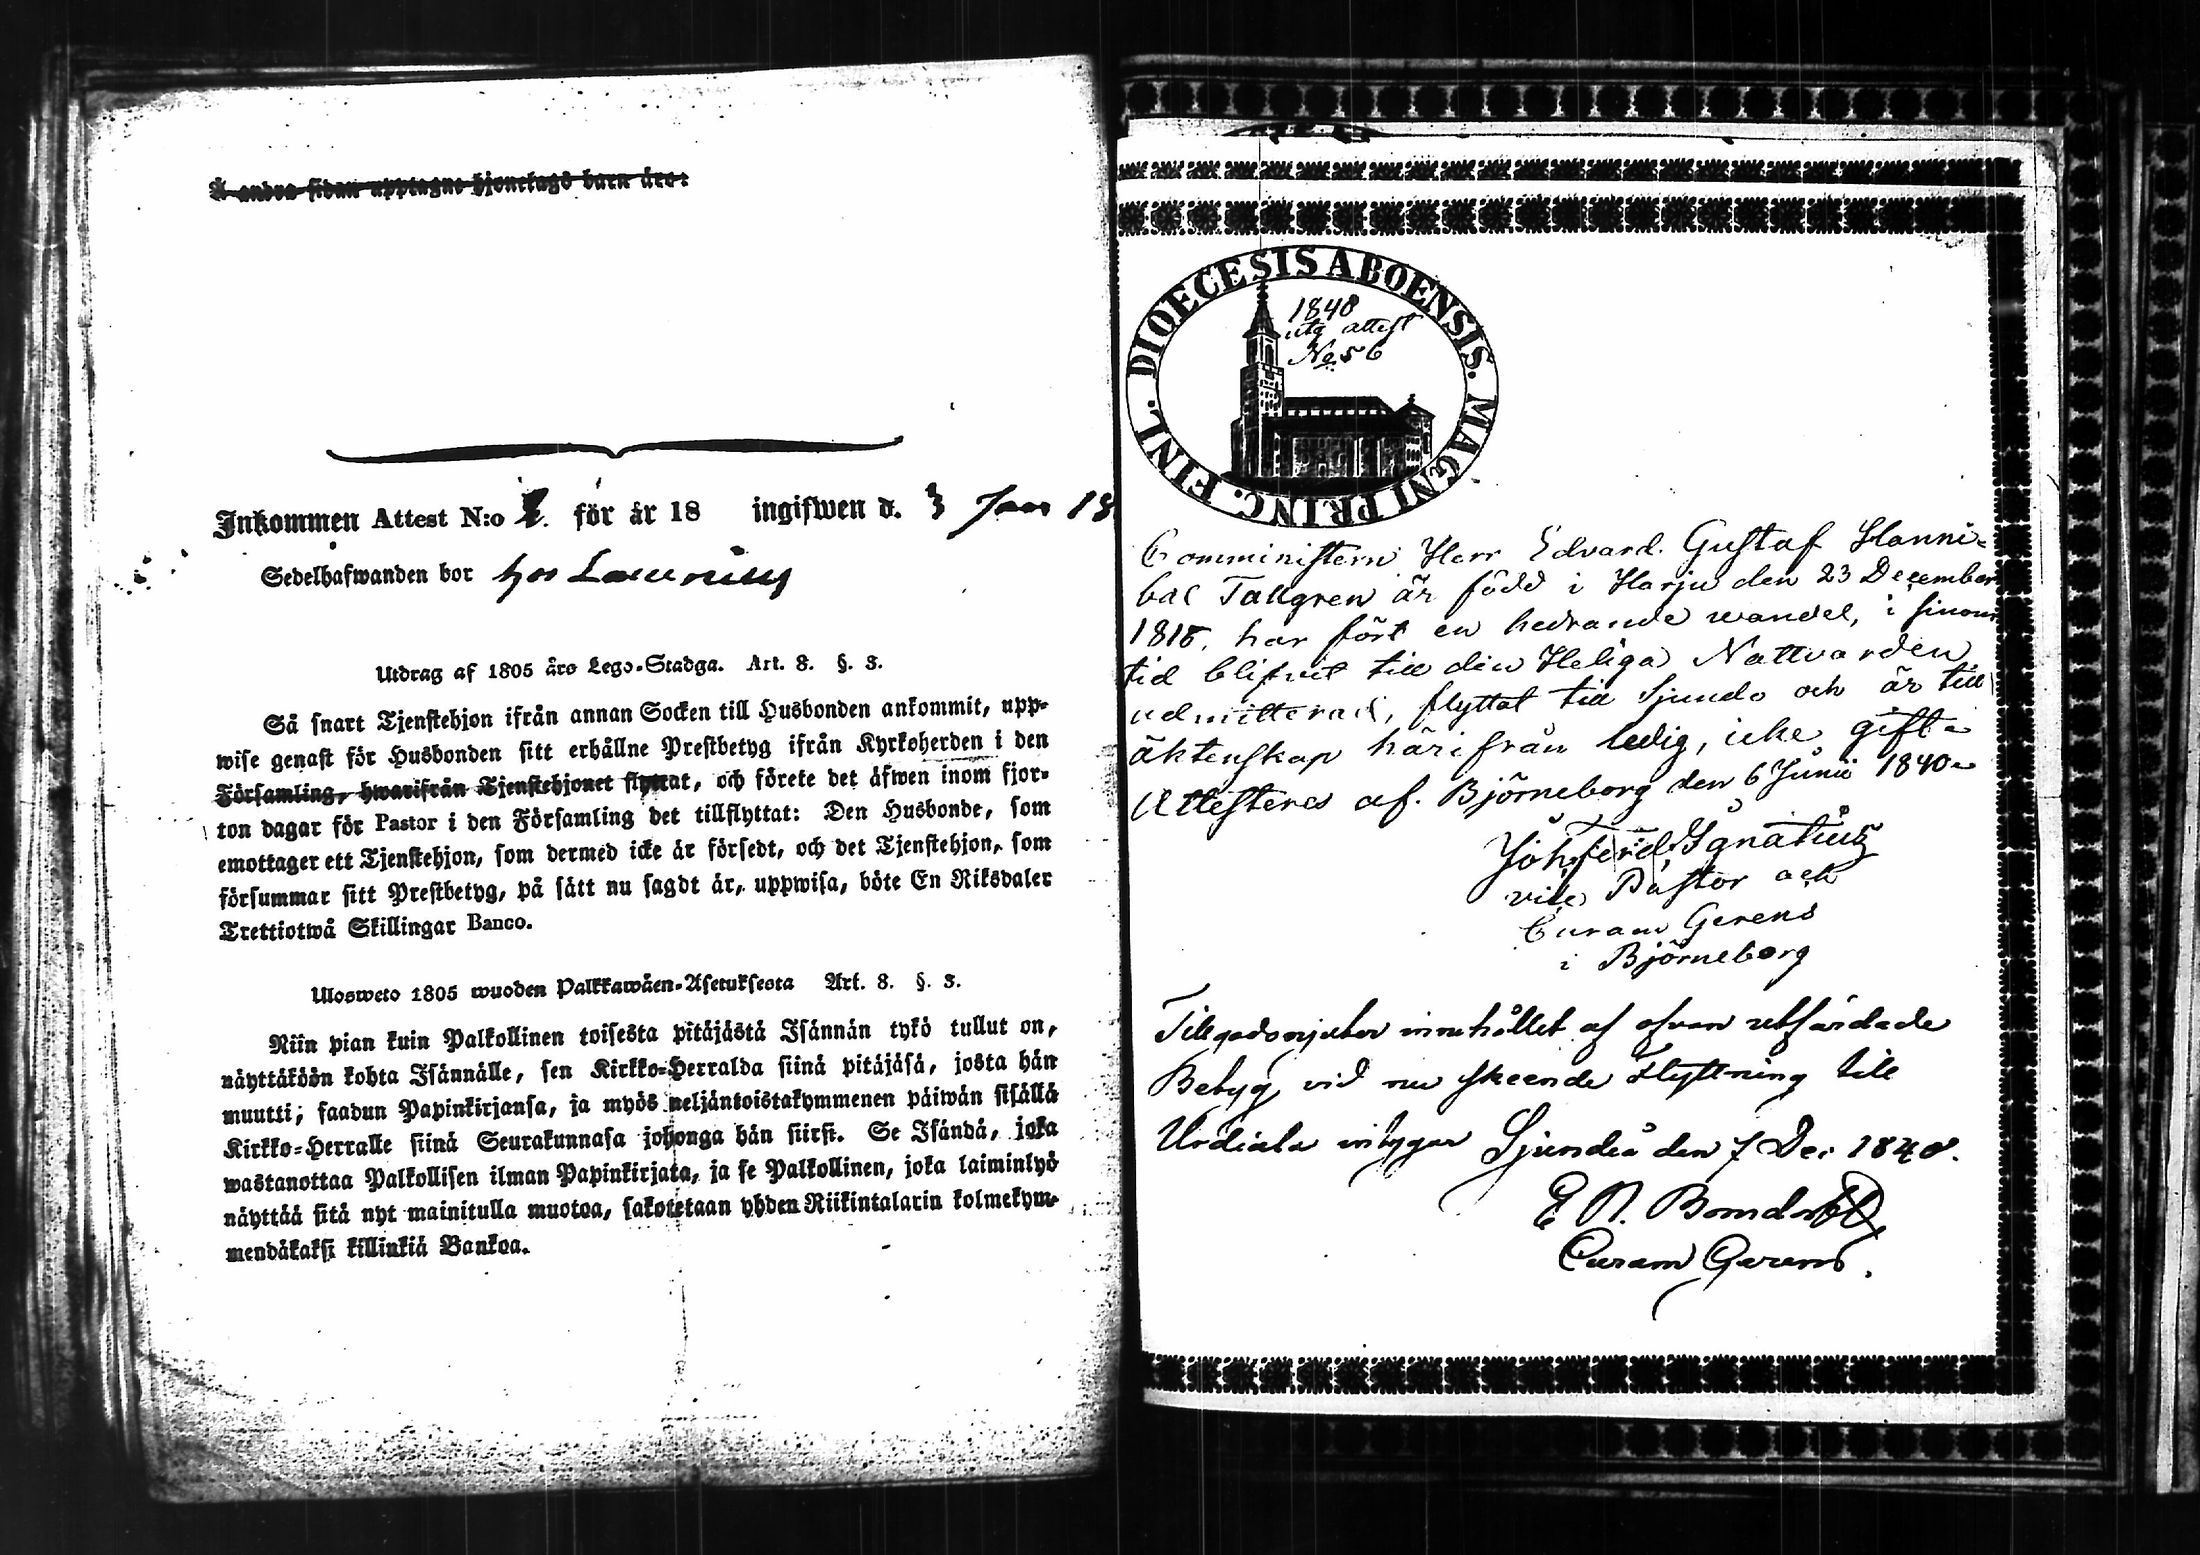 Å andra sidan upptagne hjonelags barn äro:
Inkommen Attest N:o 2. för år 18 ingifwen d. 3 Jan 18
Sedelhafwanden bor hos
Utdrag af 1805 års Lego-Stadga. Art. 8. §. 3.
Så snart Tjenstehjon ifrån annan Socken till Husbonden ankommit, upp-
wise genast för Husbonden sitt erhållne Prestbetyg ifrån Kyrkoherden i den
Församling, hwarifrån Tjenstehjonet flyttat, och förete det äfwen inom fjor-
ton dagar för Pastor i den Församling det tillflyttat: Den Husbonde, som
emottager ett Tjenstehjon, som dermed icke är försedt, och det Tjenstehjon, som
försummar sitt Prestbetyg, på sätt nu sagdt är, uppwisa, böte En Riksdaler
Trettiotwå Skillingar Banco.
Ulosweto 1805 wuoden Palkkawäen-Asetuksesta Art. 8. §. 3.
Niin pian kuin Palkollinen toisesta pitäjästä Isännän tykö tullut on,
näyttäköön kohta Isännälle, sen Kirkko-Herralda siinä pitäjäsä, josta hän
muutti, saadun Papinkirjansa, ja myös neljäntoistakymmenen päiwän sisällä
Kirkko-Herralle siinä Seurakunnasa johonga hän siirsi. Se Isändä, joka
wastanottaa Palkollisen ilman Papinkirjata, ja se Palkollinen, joka laiminlyö
näyttää sitä nyt mainitulla muotoa, sakotetaan yhden Riikintalarin kolmekym-
mendäkaksi killinkiä Bankoa.
DIOECESIS ABOENSIS. MAGNI PRINC. FINL.
1840
utg attest
No 56
Comministern Herr Edvard. Gustaf Hanni-
bal Tallgren är född i Harju den 23 December
1815, har fört en hedrande wandel, i sinom
tid blifvit till den Heliga Nattvarden
admitterad, flyttat till Sjundo och är till
äktenskap härifrån ledig, icke gift
Attesteres af. Björneborg den 6 Junii 1840
Joh. Ferd. Ignatius
vice Pastor och
Curam Gerens
i Björneborg
Tillgodonjuter innehållet af ofvan utfärdade
Betyg vid nu skeende Flyttning till
Urdiala intygar Sjundeå den 7 Dec 1840.
E N. Bomdorff
Curam Gerens.